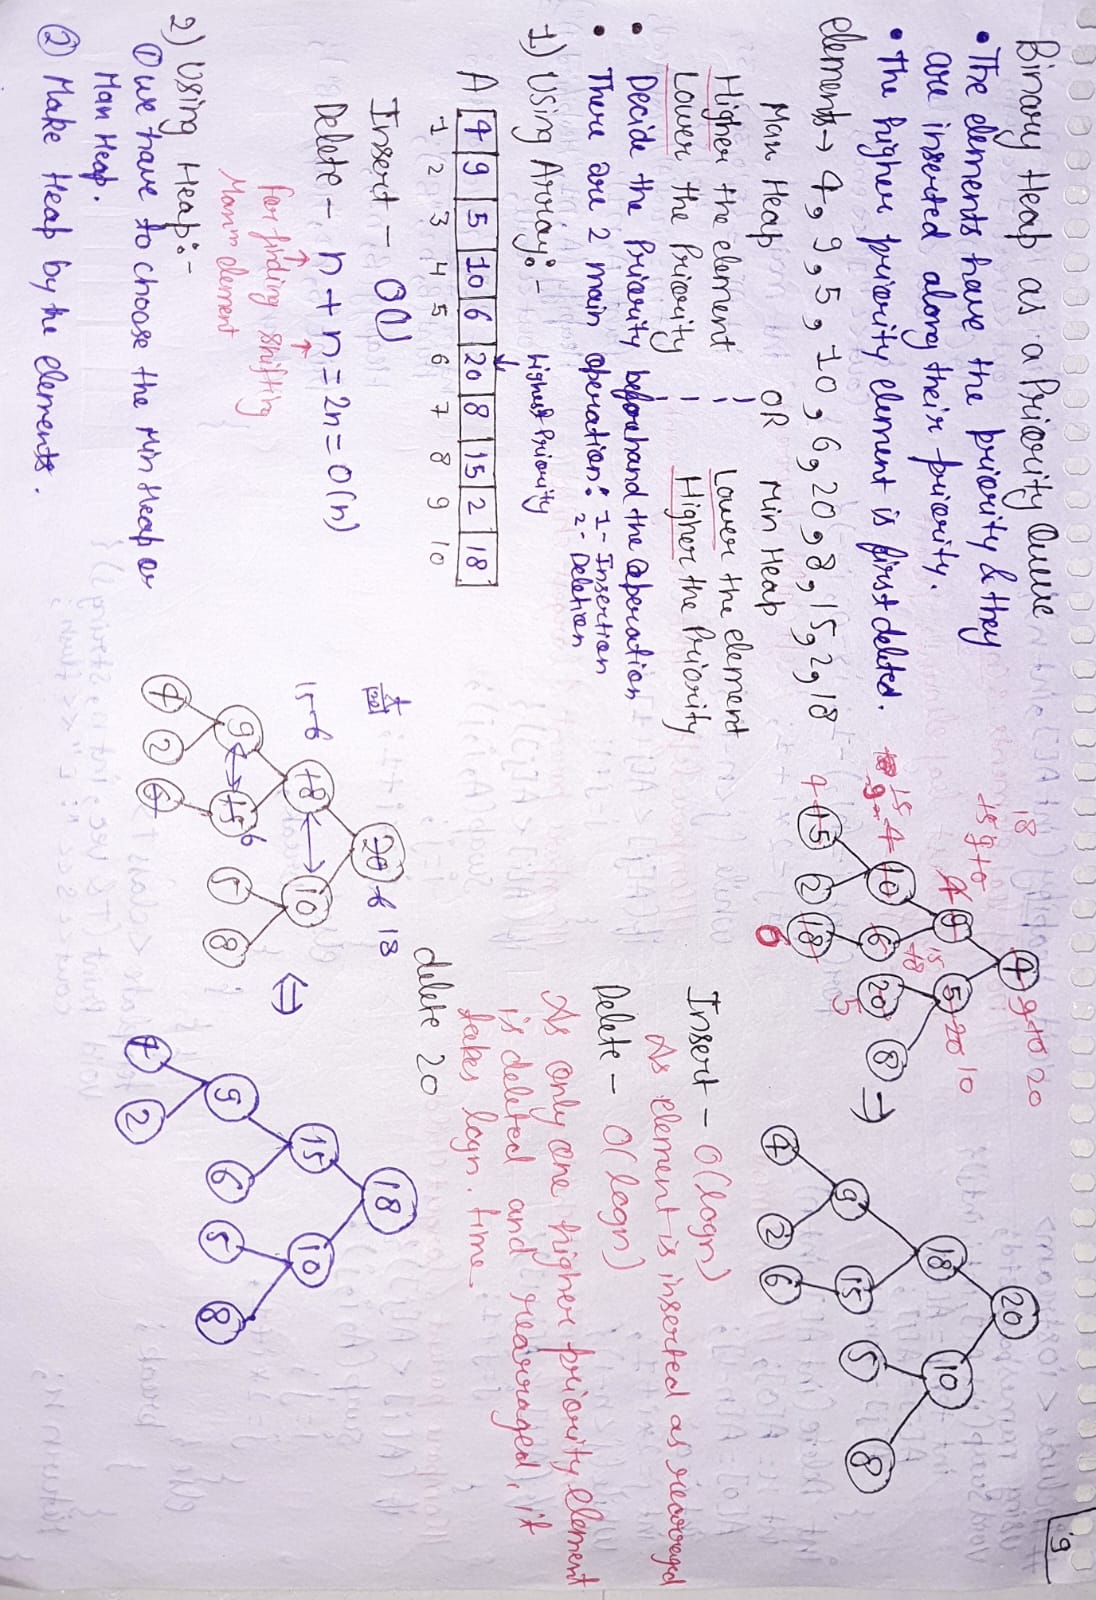 9
Binary Heap as a Priority Queue
• The elements have the priority & they
are inserted along their priority.
• The higher priority element is first deleted.
elements → 4, 9, 5, 10, 6, 20, 8, 15, 2, 18
Max Heap OR Min Heap
Higher the element Lower the element
Lower the Priority Higher the Priority
• Decide the Priority beforehand the operation
• There are 2 main operation: 1- Insertion
2- Deletion
1) Using Array:-
highest Priority
A 4 9 5 10 6 20 8 15 2 18
1 2 3 4 5 6 7 8 9 10
Insert – O(1)
Delete – n + n = 2n = O(n)
for finding shifting
Maxm element
2) Using Heap:-
① we have to choose the Min Heap or
Max Heap.
② Make Heap by the elements.
18 4 9 10 20
15 9 10
4 9 5 20 10
15 10
15 9 4 10 6 20 8
5
4 15 2 18
6
⇒
20
18 10
9 15 5 8
4 2 6
Insert – O(logn)
As element is inserted as rearraged
Delete – O(logn)
As only one higher priority element
is deleted and rearraged, it
takes logn. time
delete 20
20 6 18
15 6 18 10
9 15 6 5 8
4 2 6
⇔
18
15 10
9 6 5 8
4 2